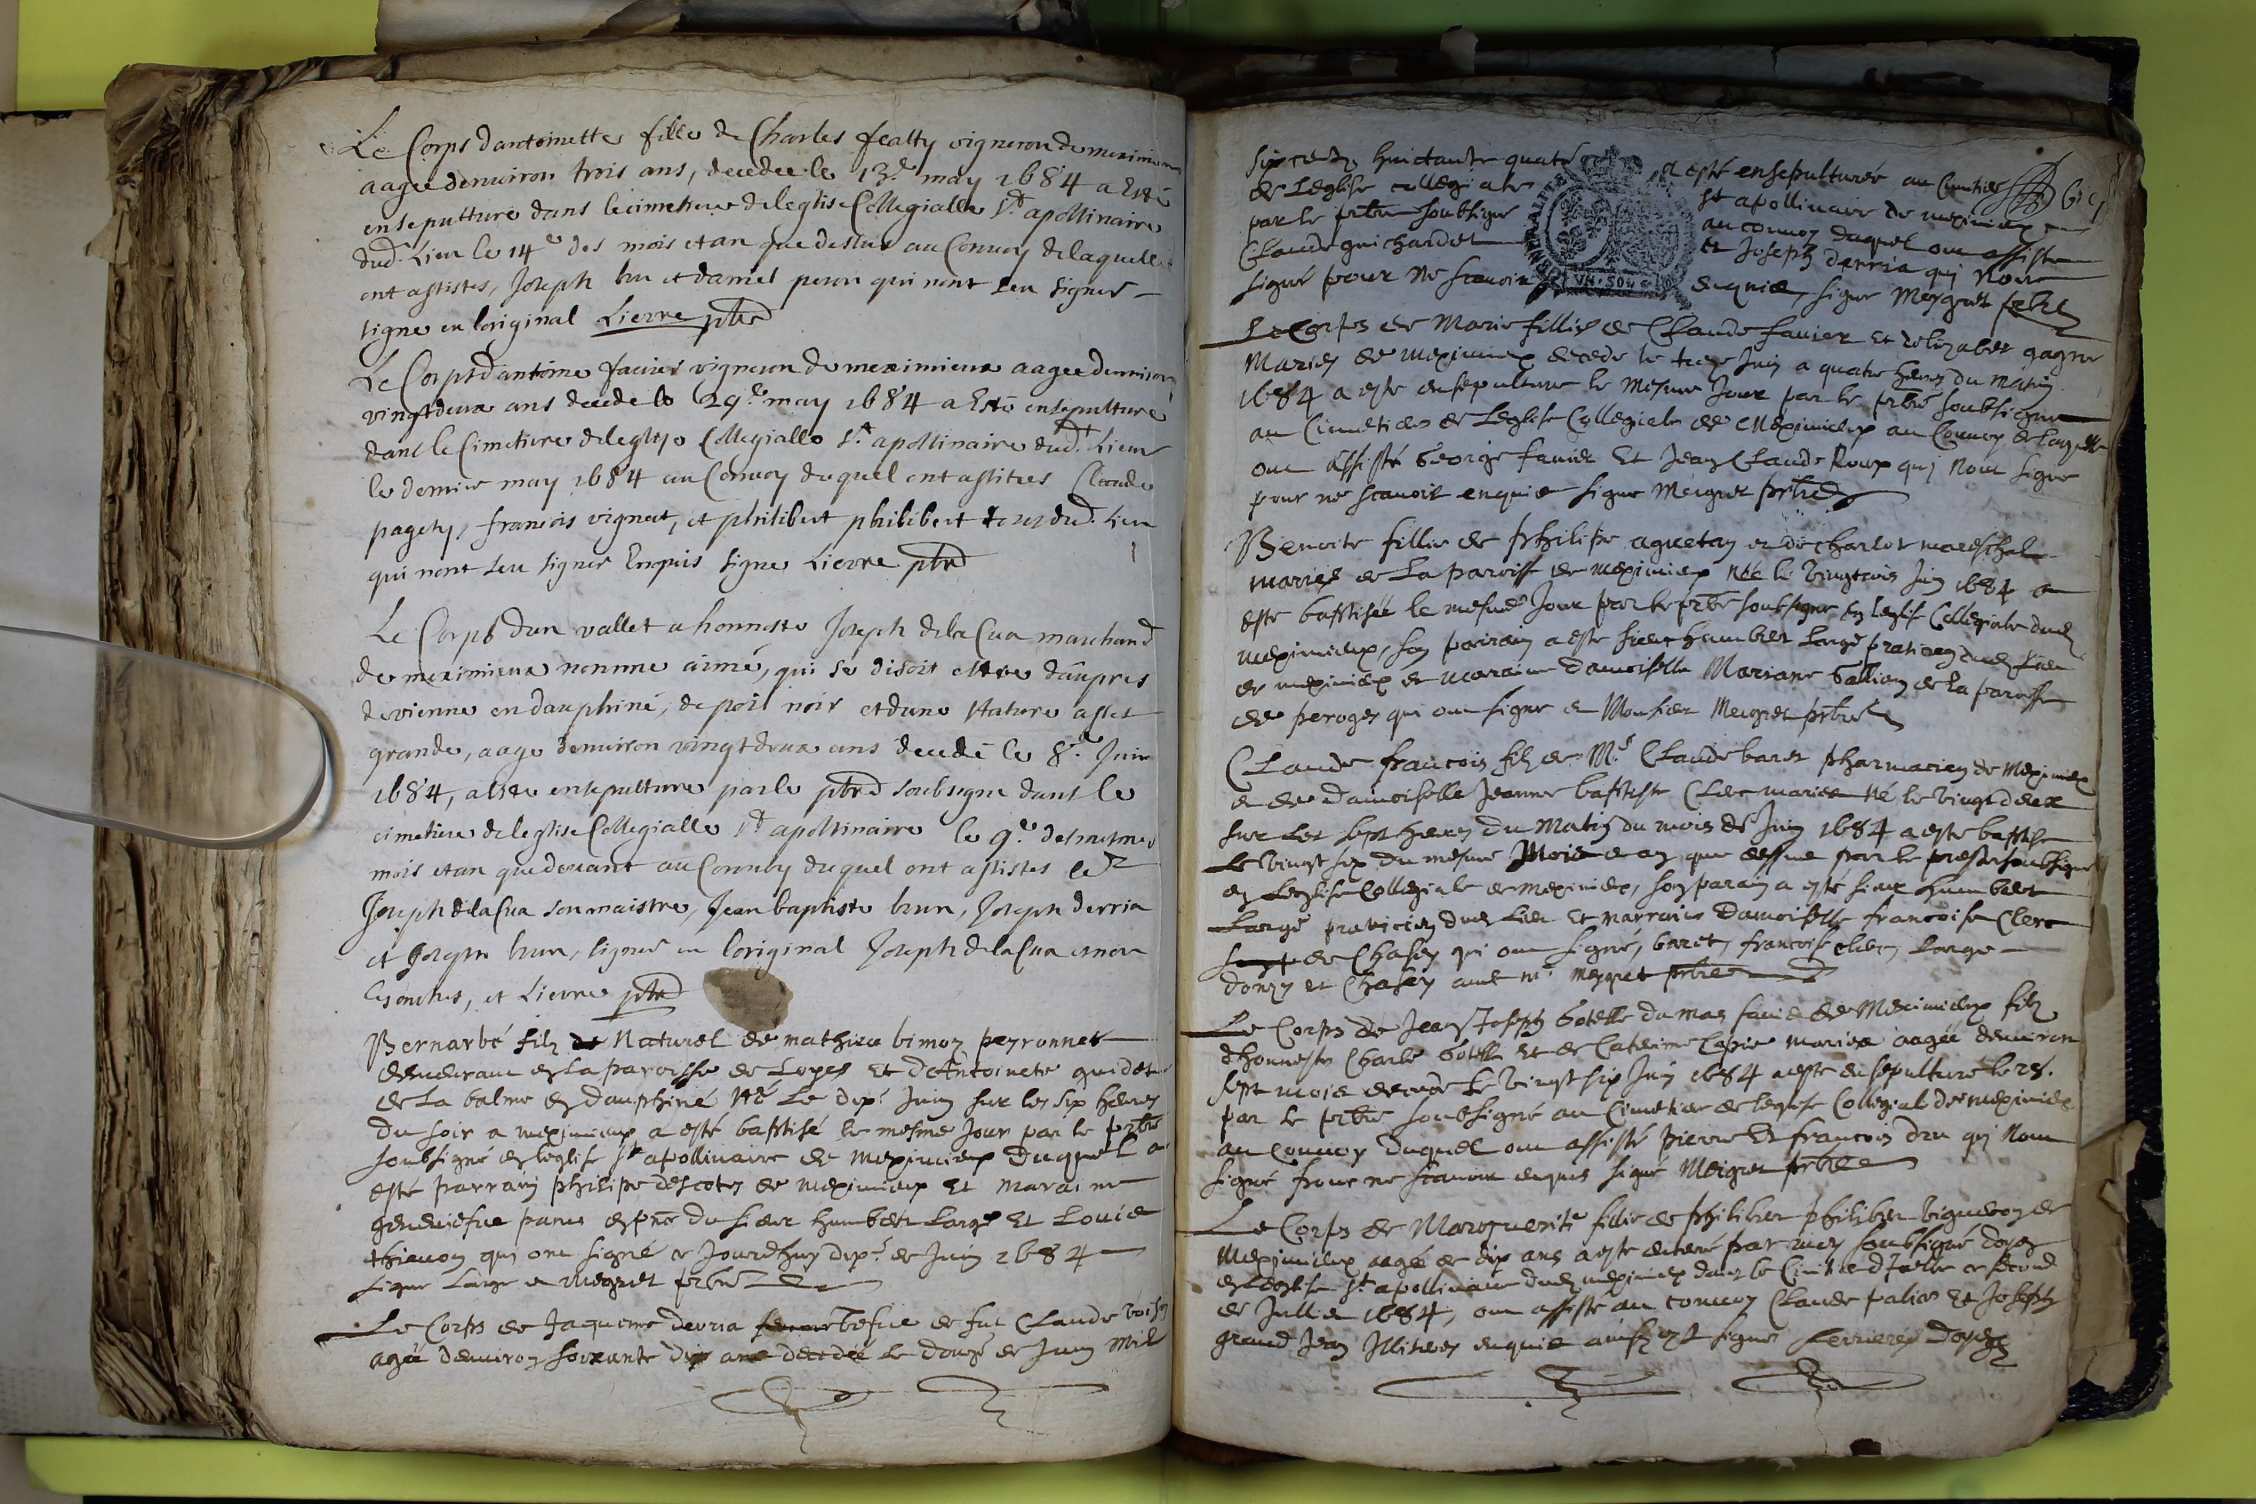 Le Corps dantoinette fille de Charles featty vigneron de meximieux
aagee denuiron trois ans, decedee le 13e may 1684 a Esté
ensepulturé dans le cimetiere de leglise Collegialle St apollinaire
dud. Lieu le 14e des mois et an que dessus au Convoy de laquelle
ont assistes, Joseph bru et daniel peron qui nont sceu signer
signe en loriginal Lievre ptre
Le Corps dantoine favier vigneron de meximieux aagee denuiron
vingtdeux ans decede le 29e may 1684 a Esté ensepulturé
dans le Cimetiere de leglise Collegialle St apollinaire dud. Lieu
le dernier may 1684 au Convoy duquel ont assistes Claude
pagety, francois vignet, et philibert philibert tous dud. Lieu
qui nont sceu signer Enquis signe Lievre ptre
Le Corps dun vallet a honneste Joseph de la Cua marchand
de meximieux nomme aimé, qui se disoit estre daupres
de vienne en dauphiné, de poil noir et dune stature asses
grande, aage denuiron vingtdeux ans decedé le 8e Juin
1684, a Este ensepulture par le ptre soubsigne dans le
cimetiere de leglise Collegialle St apollinaire le 9e desmesmes
mois et an que devant au Convoy duquel ont assistes le sr
Joseph de la Cua son maistre, Jean baptiste brun, Joseph derria
et Joseph brun, signes en loriginal Joseph de la Cua et non
les autres, et Lievre ptre
Bernarbé filz de Naturel de mathieu bimoz peyronnet
demeurant en la paroisse de Loyes Et dAntoinete guidet
de la balme en dauphiné Né Le dixe Juin sur les six heures
du soir a meximieux a esté baptisé le mesme Jour par le prbre
soubsigné en leglise St apollinaire de meximieux Duquel a
esté parrain philipe descotes de meximieux Et maraine
geneviefve panis en pnce du sieur humbert Large Et Louise
thievon qui ont signé ce Jourdhuy dixe de Juin 1684
signe Large et meygret prbre
Le Corps de Jaqueme derria femme vefve de fut Claude
agée denviron soixante dix ans decedée le douze de Juin Mil
six centz huictante quatre a esté ensepulturée au Cimetiere
de Leglise collegiale St apollinaire de meximieux
par le prbre soubsigné au convoy duquel ont assisté
Claude guichardet et Joseph derria qui Nont
signé pour ne scavoir enquis, signe Meygret prbre
Le Corps de Marie fillie de Claude favier Et delizabet gagne
Maries de meximieux decede le treze Juin a quatre heures du matin
1684 a este ensepulture le mesme Jour par le prbre soubsigne
au Cimetiere de Leglise Collegiale de Meximieux au Convoy de laquelle
ont Assisté George favier Et Jean Claude Roux qui Nont signe
pour ne scavoir enquis signe Meigret prbre
Benoite fillie de philipe aguetan et de charlot mareschal
maries de La paroisse de meximieux Née le vingtrois Juin 1684 a
este baptisée le mesme Jour par le prbre soubsigne en leglise Collegiale dud
meximieux, son parrain a este sieur humbert Large praticien dud Lieu
de meximieux et maraine damoiselle Mariane Gallian de la paroisse
de peroges qui ont signe et Monsieur Meigret prbre
Claude francois filz de Mr Claude baret pharmacien de Meximieux
et de damoiselle Jeanne baptiste Clerc maries Né le vingt deux
sur Les sept heures du Matin du mois de Juin 1684 a este baptise
Le vingt six du mesme Mois et an que dessus par le prestre soubsigne
en Leglise Collegiale de meximieux, son parain a esté sieur humbert
Large praticien dud Lieu Et marraine damoiselle francoise Clerc
de Chasey qui ont signé, baret, francoise clerc, Large
donzy et Chasey avec mr meygret prbre
Le Corps de Jean Joseph Gotelle du mas favier de Meximieux filz
dhonneste Charle Gotelle Et de Caterine maries aagée denviron
sept mois decede le vingt six Juin 1684 a este ensepulture le 28.
par le prbre soubsigné au Cimetiere de leglise Collegial de meximieux
au Convoy duquel ont assisté pierre Et francois dru qui Nont
signé pour ne scavoir enquis signé Meigret prbre
Le Corps de Marguerite fillie de philibert philibert vigneron de
Meximieux aagée de dix ans a este enterré par moy soubsigné doyen
en Leglise St apollinaire dud meximieux dans le Cimitiere dicelle ce second
de Jullie 1684, ont assisté au convoy Claude palias Et Joseph
grand Jean Illiteres enquis ainsy est signé Ferrieres doyen